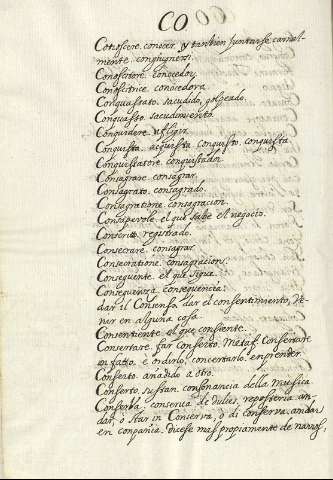 CO
Conoscere. conocer, y tambien juntarse carnal-
mente. conghugnersi.
Conoscitore. conocedor.
Conoscitrice. conocedora.
Conquassato. sacudido, golpeado.
Conquasso. sacudimiento.
Conquidere. afligir.
Conquista. acquista conquisto. conquista
Conquistatore. conquistador.
Consagrare. consagrar.
Consagrato. consagrado.
Consagratione. consagracion.
Consapevole. el que sabe el negocio.
Conscritto. registrado.
Consecrare. consagrar.
Consecratione. consagracion.
Conseguente. el que sigue.
Conseguenza. consequencia.
dar il Consenso. dar el consentimiento, ve-
nir en alguna cosa.
Consentiente. el que consiente.
Consertare. far conserto. Metaf. Consertare
un fatto, e ordirlo. concertarlo. emprender
Conserto. añadido a otro.
Conserto, sustan. consonancia della musica
Conserva. conserva de dulces, reposteria. an-
dar, o star in Conserva, o di conserva. andar
en compañia. dicese mas propiamente de navios,